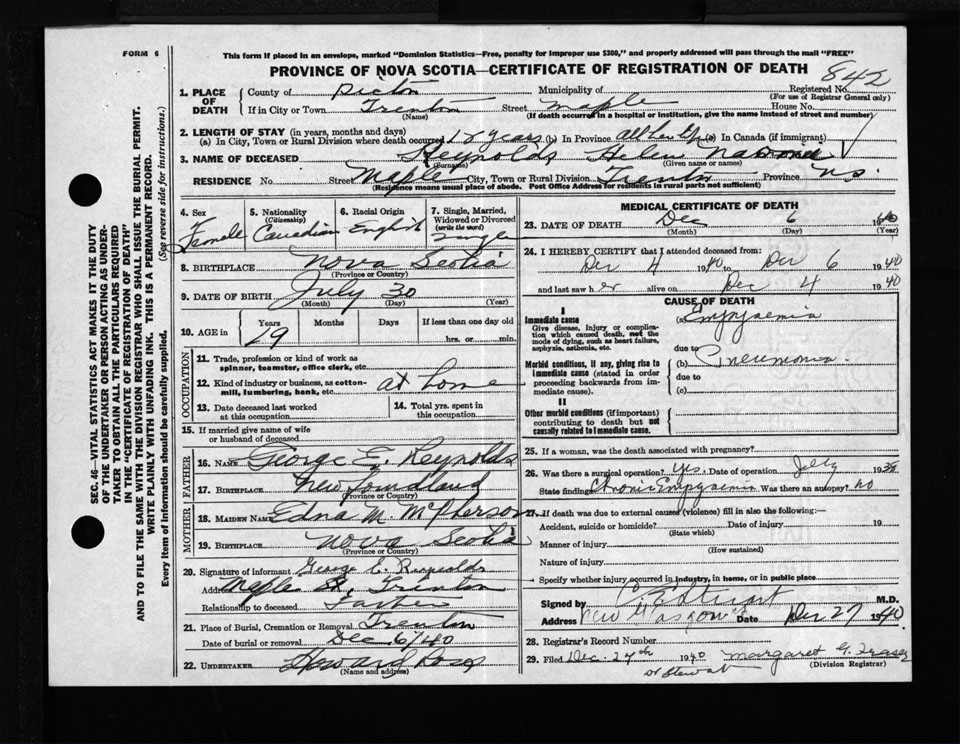 FORM 6
This form if placed in an envelope, marked "Dominion Statistics—Free, penalty for improper use $300," and properly addressed will pass through the mail "FREE"
PROVINCE OF NOVA SCOTIA—CERTIFICATE OF REGISTRATION OF DEATH
842
1. PLACE OF DEATH
County of Pictou Municipality of Registered No.
(For use of Registrar General only)
If in City or Town Trenton Street Maple House No.
(Name) (If death occurred in a hospital or institution, give the name instead of street and number)
2. LENGTH OF STAY (in years, months and days)
(a) In City, Town or Rural Division where death occurred 12 years (b) In Province all her life (c) In Canada (if immigrant)
3. NAME OF DECEASED Reynolds Helen
(Surname) (Given name or names)
RESIDENCE No. Street Maple City, Town or Rural Division Trenton Province N.S.
(Residence means usual place of abode. Post Office Address for residents in rural parts not sufficient)
4. Sex Female
5. Nationality (Citizenship) Canadian
6. Racial Origin English
7. Single, Married, Widowed or Divorced (write the word) Single
8. BIRTHPLACE Nova Scotia
(Province or Country)
9. DATE OF BIRTH July 30
(Month) (Day) (Year)
10. AGE in Years 19 Months Days If less than one day old
hrs. or min.
OCCUPATION
11. Trade, profession or kind of work as spinner, teamster, office clerk, etc.
12. Kind of industry or business, as cotton-mill, lumbering, bank, etc. at home
13. Date deceased last worked at this occupation
14. Total yrs. spent in this occupation
15. If married give name of wife or husband of deceased
FATHER
16. NAME George E. Reynolds
17. BIRTHPLACE Newfoundland
(Province or Country)
MOTHER
18. MAIDEN NAME Edna M. McPherson
19. BIRTHPLACE Nova Scotia
(Province or Country)
20. Signature of informant George E. Reynolds
Address Maple St, Trenton
Relationship to deceased Father
21. Place of Burial, Cremation or Removal Trenton
Date of burial or removal Dec 6/40
22. UNDERTAKER Howard Ross
(Name and address)
MEDICAL CERTIFICATE OF DEATH
23. DATE OF DEATH Dec 6 1940
(Month) (Day) (Year)
24. I HEREBY CERTIFY that I attended deceased from:
Dec 4 1940 to Dec 6 1940
and last saw her alive on Dec 4 1940
CAUSE OF DEATH
I
Immediate cause (a) Empyaemia
Give disease, injury or complication which caused death, not the mode of dying, such as heart failure, asphyxia, asthenia, etc.
due to
Morbid conditions, if any, giving rise to immediate cause (stated in order proceeding backwards from immediate cause).
(b) Pneumonia
due to
(c)
II
Other morbid conditions (if important) contributing to death but not causally related to immediate cause.
25. If a woman, was the death associated with pregnancy?
26. Was there a surgical operation? yes. Date of operation July 1938
State findings Chronic Empyaemia Was there an autopsy? no
27. If death was due to external causes (violence) fill in also the following:—
Accident, suicide or homicide? Date of injury 19
(State which)
Manner of injury
(How sustained)
Nature of injury
Specify whether injury occurred in industry, in home, or in public place
Signed by Stewart M.D.
Address New Glasgow Date Dec 27 1940
28. Registrar's Record Number
29. Filed Dec. 24th 1940 Margaret G. Fraser
(Division Registrar)
Dr Stewart
SEC. 46—VITAL STATISTICS ACT MAKES IT THE DUTY
OF THE UNDERTAKER OR PERSON ACTING AS UNDER-
TAKER TO OBTAIN ALL THE PARTICULARS REQUIRED
IN THE "CERTIFICATE OF REGISTRATION OF DEATH"
AND TO FILE THE SAME WITH THE DIVISION REGISTRAR WHO SHALL ISSUE THE BURIAL PERMIT.
WRITE PLAINLY WITH UNFADING INK. THIS IS A PERMANENT RECORD.
Every item of information should be carefully supplied. (See reverse side for instructions.)